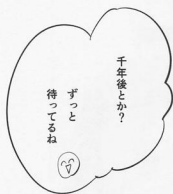 千年後とか？
ずっと
待ってるね